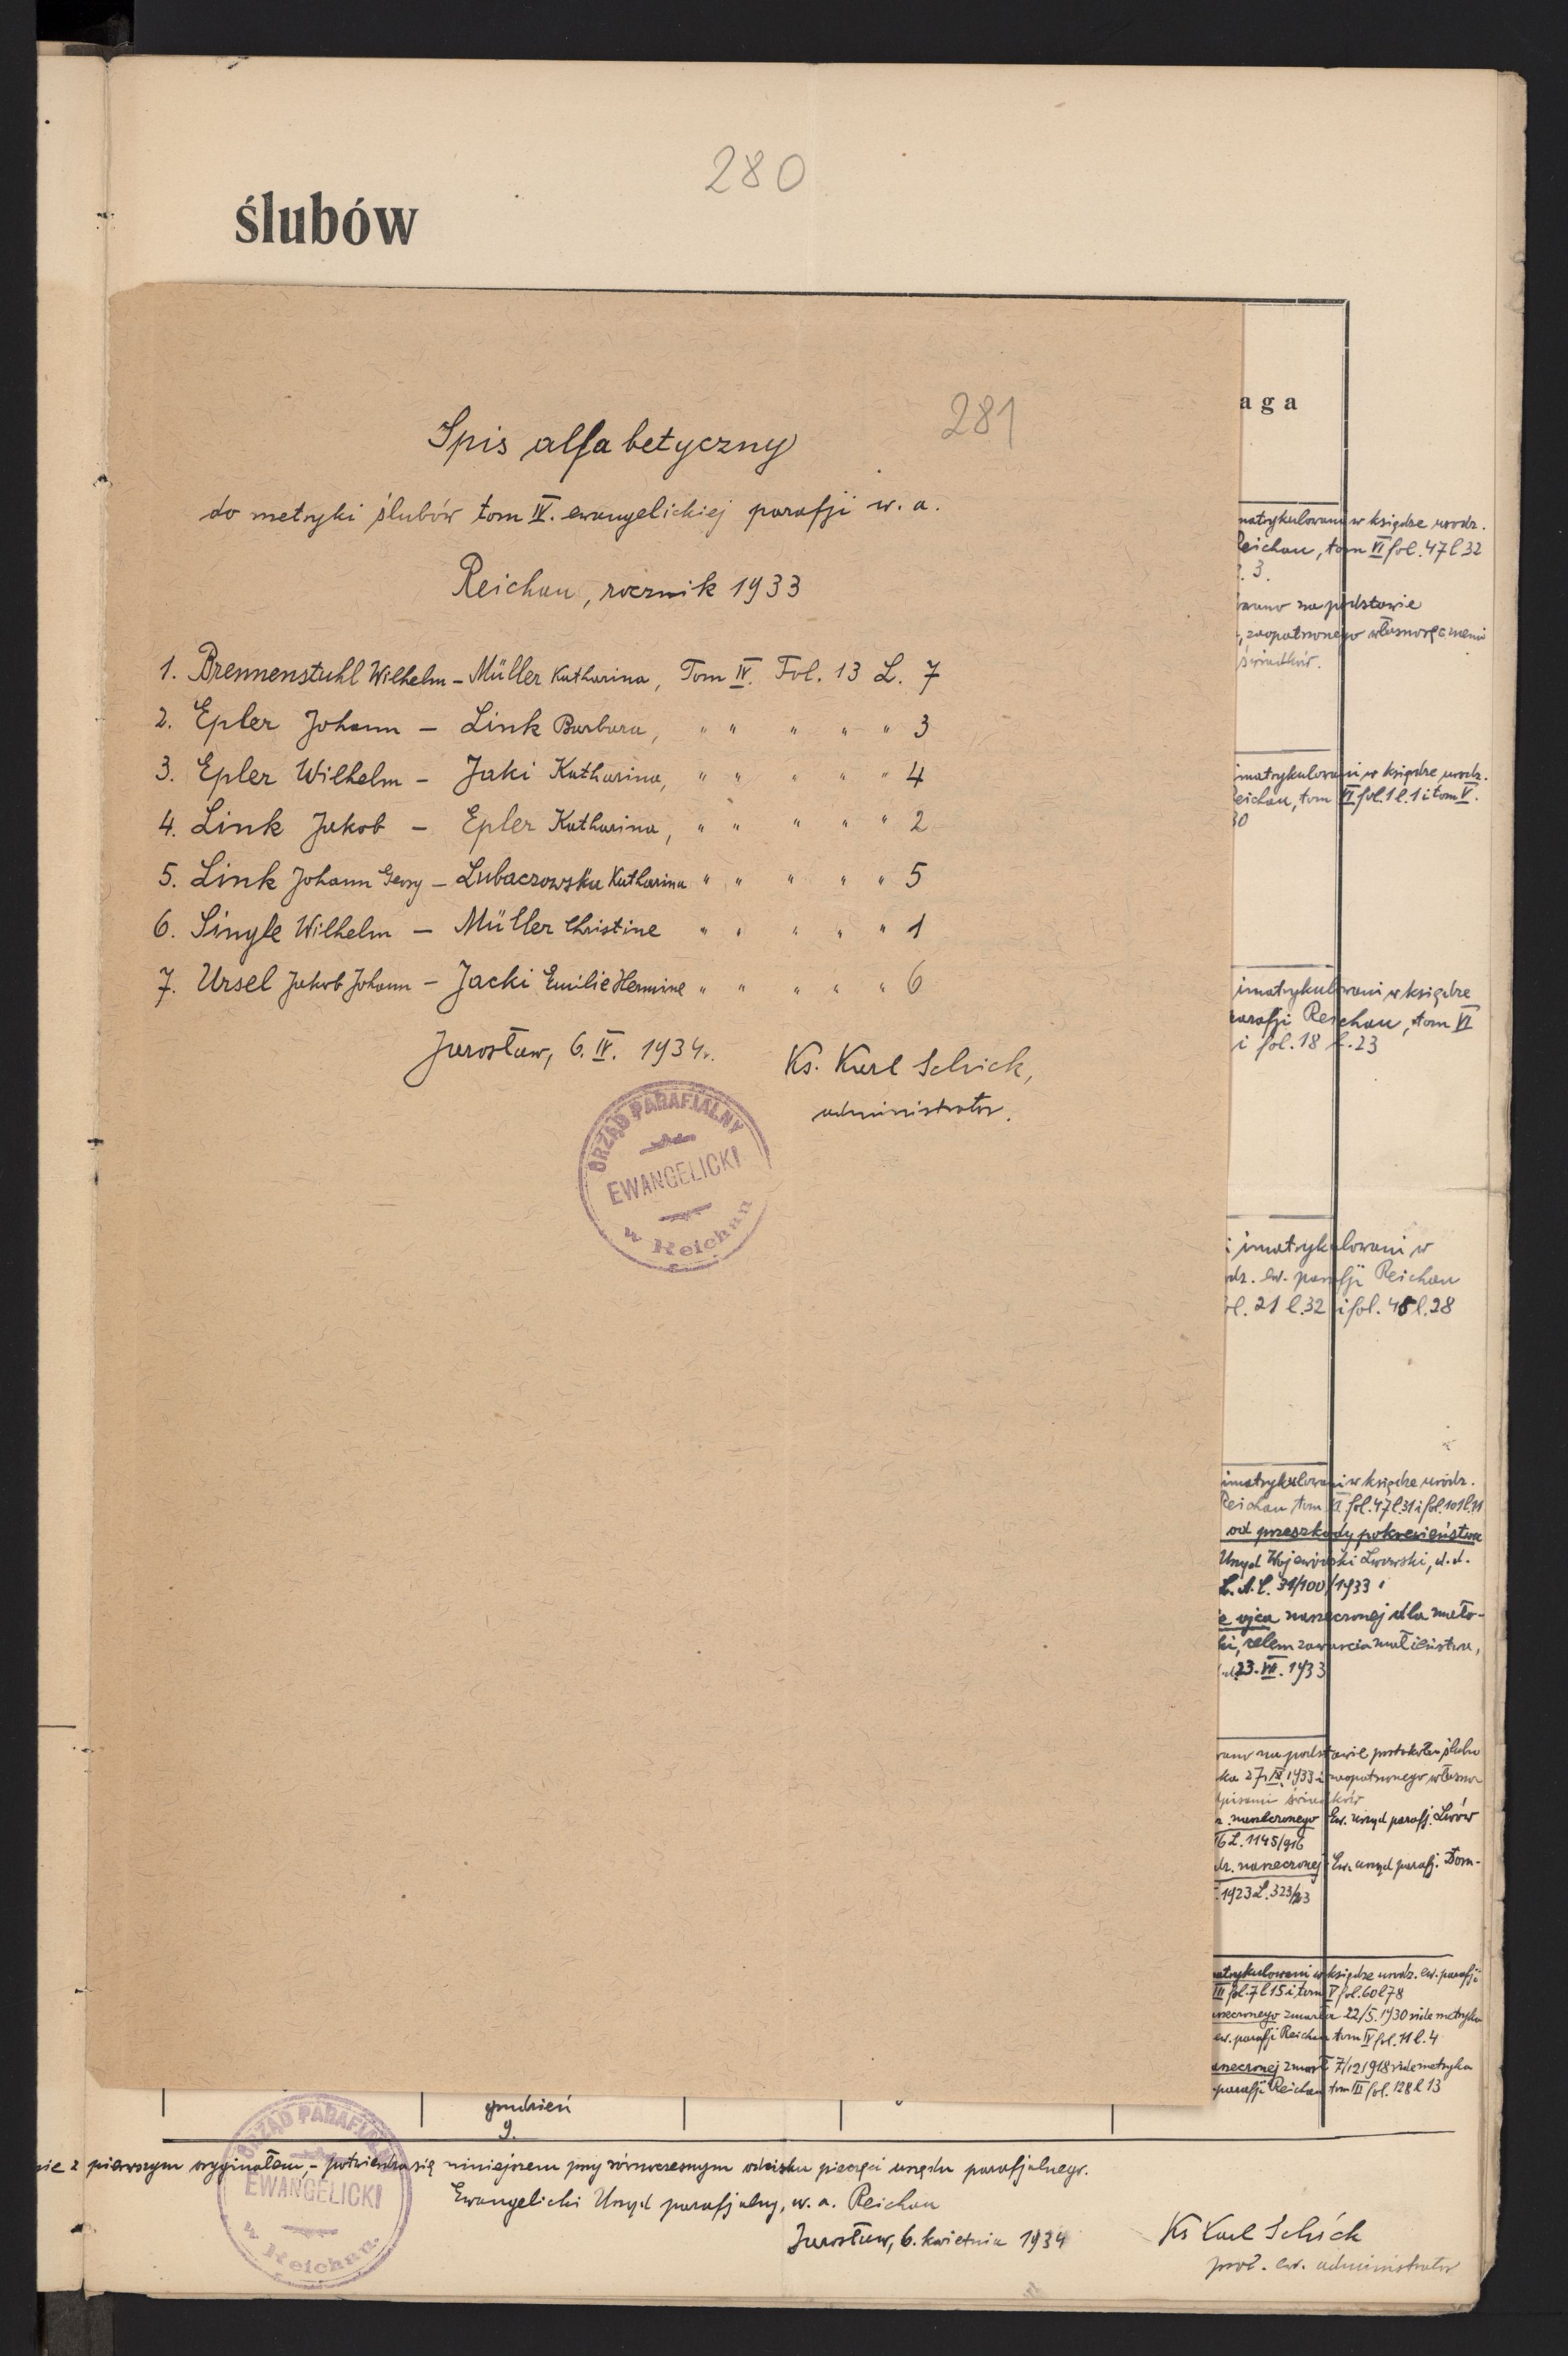 280
ślubów
281
Spis alfabetyczny
do metryki ślubów tom IV. ewangelickiej parafji w. a.
Reichau, rocznik 1933
1. Brennenstuhl Wilhelm – Müller Katharina, Tom IV. Fol. 13 L. 7
2. Epler Johann – Link Barbara, " " " " " 3
3. Epler Wilhelm – Jaki Katharina, " " " " " 4
4. Link Jakob – Epler Katharina, " " " " " 2
5. Link Johann Georg – Lubaczowska Katharina " " " " " 5
6. Single Wilhelm – Müller Christine " " " " " 1
7. Ursel Jakob Johann – Jacki Emilie Hermine " " " " " 6
Jarosław, 6. IV. 1934r.
Ks. Karl Schick,
administrator.
URZĄD PARAFJALNY
EWANGELICKI
w Reichau
aga
matrykulowani w księdze urodz.
Reichau, tom VI fol. 47 l 32
l. 3.
wano na podstawie
, zaopatrzonego własnoręcznemi
świadków.
imatrykulowani w księdze urodz.
Reichau, tom VI fol. 1 l. 1 i tom V.
30
imatrykulowani w księdze
parafji Reichau, tom VI
i fol. 18 l. 23
i imatrykulowani w
dz. ew. parafji Reichau
ol. 21 l. 32 i fol. 48 l. 28
imatrykulowani w księdze urodz.
Reichau tom VI fol. 47 l. 31 i fol. 101 l. 11
od przeszkody pokrewieństwa
Urząd Wojewódzki Lwowski, d. d.
L. A. C. 31/100/1933 i
e ojca narzeczonej dla mało-
ki, celem zawarcia małżeństwa,
23. VII. 1933
wano na podstawie protokołu ślubu
ka 27. IX. 1933 i zaopatrzonego własno-
pisami świadków
narzeczonego Ew. urząd parafj. Lwów
16 L. 1145/916
dz. narzeczonej Ew. urząd parafj. Dorn-
. 1923 L. 323/23
matrykulowani w księdze urodz. ew. parafji
III fol. 7 l 15 i tom V fol. 60 l 78
narzeczonego zmarła 22/5. 1930 vide metryka
ew. parafji Reichau tom IV fol. 11 l. 4
narzeczonej zmarł 7/12 1918 vide metryka
parafji Reichau tom III fol. 128 l 13
grudzień
9.
nie z pierwszym oryginałem, – potwierdza się niniejszem przy równoczesnym odcisku pieczęci urzędu parafjalnego.
Ewangelicki Urząd parafjalny, w. a. Reichau
Jarosław, 6. kwietnia 1934
Ks Karl Schick
prot. ew. administrator
URZĄD PARAFJALNY
EWANGELICKI
w Reichau